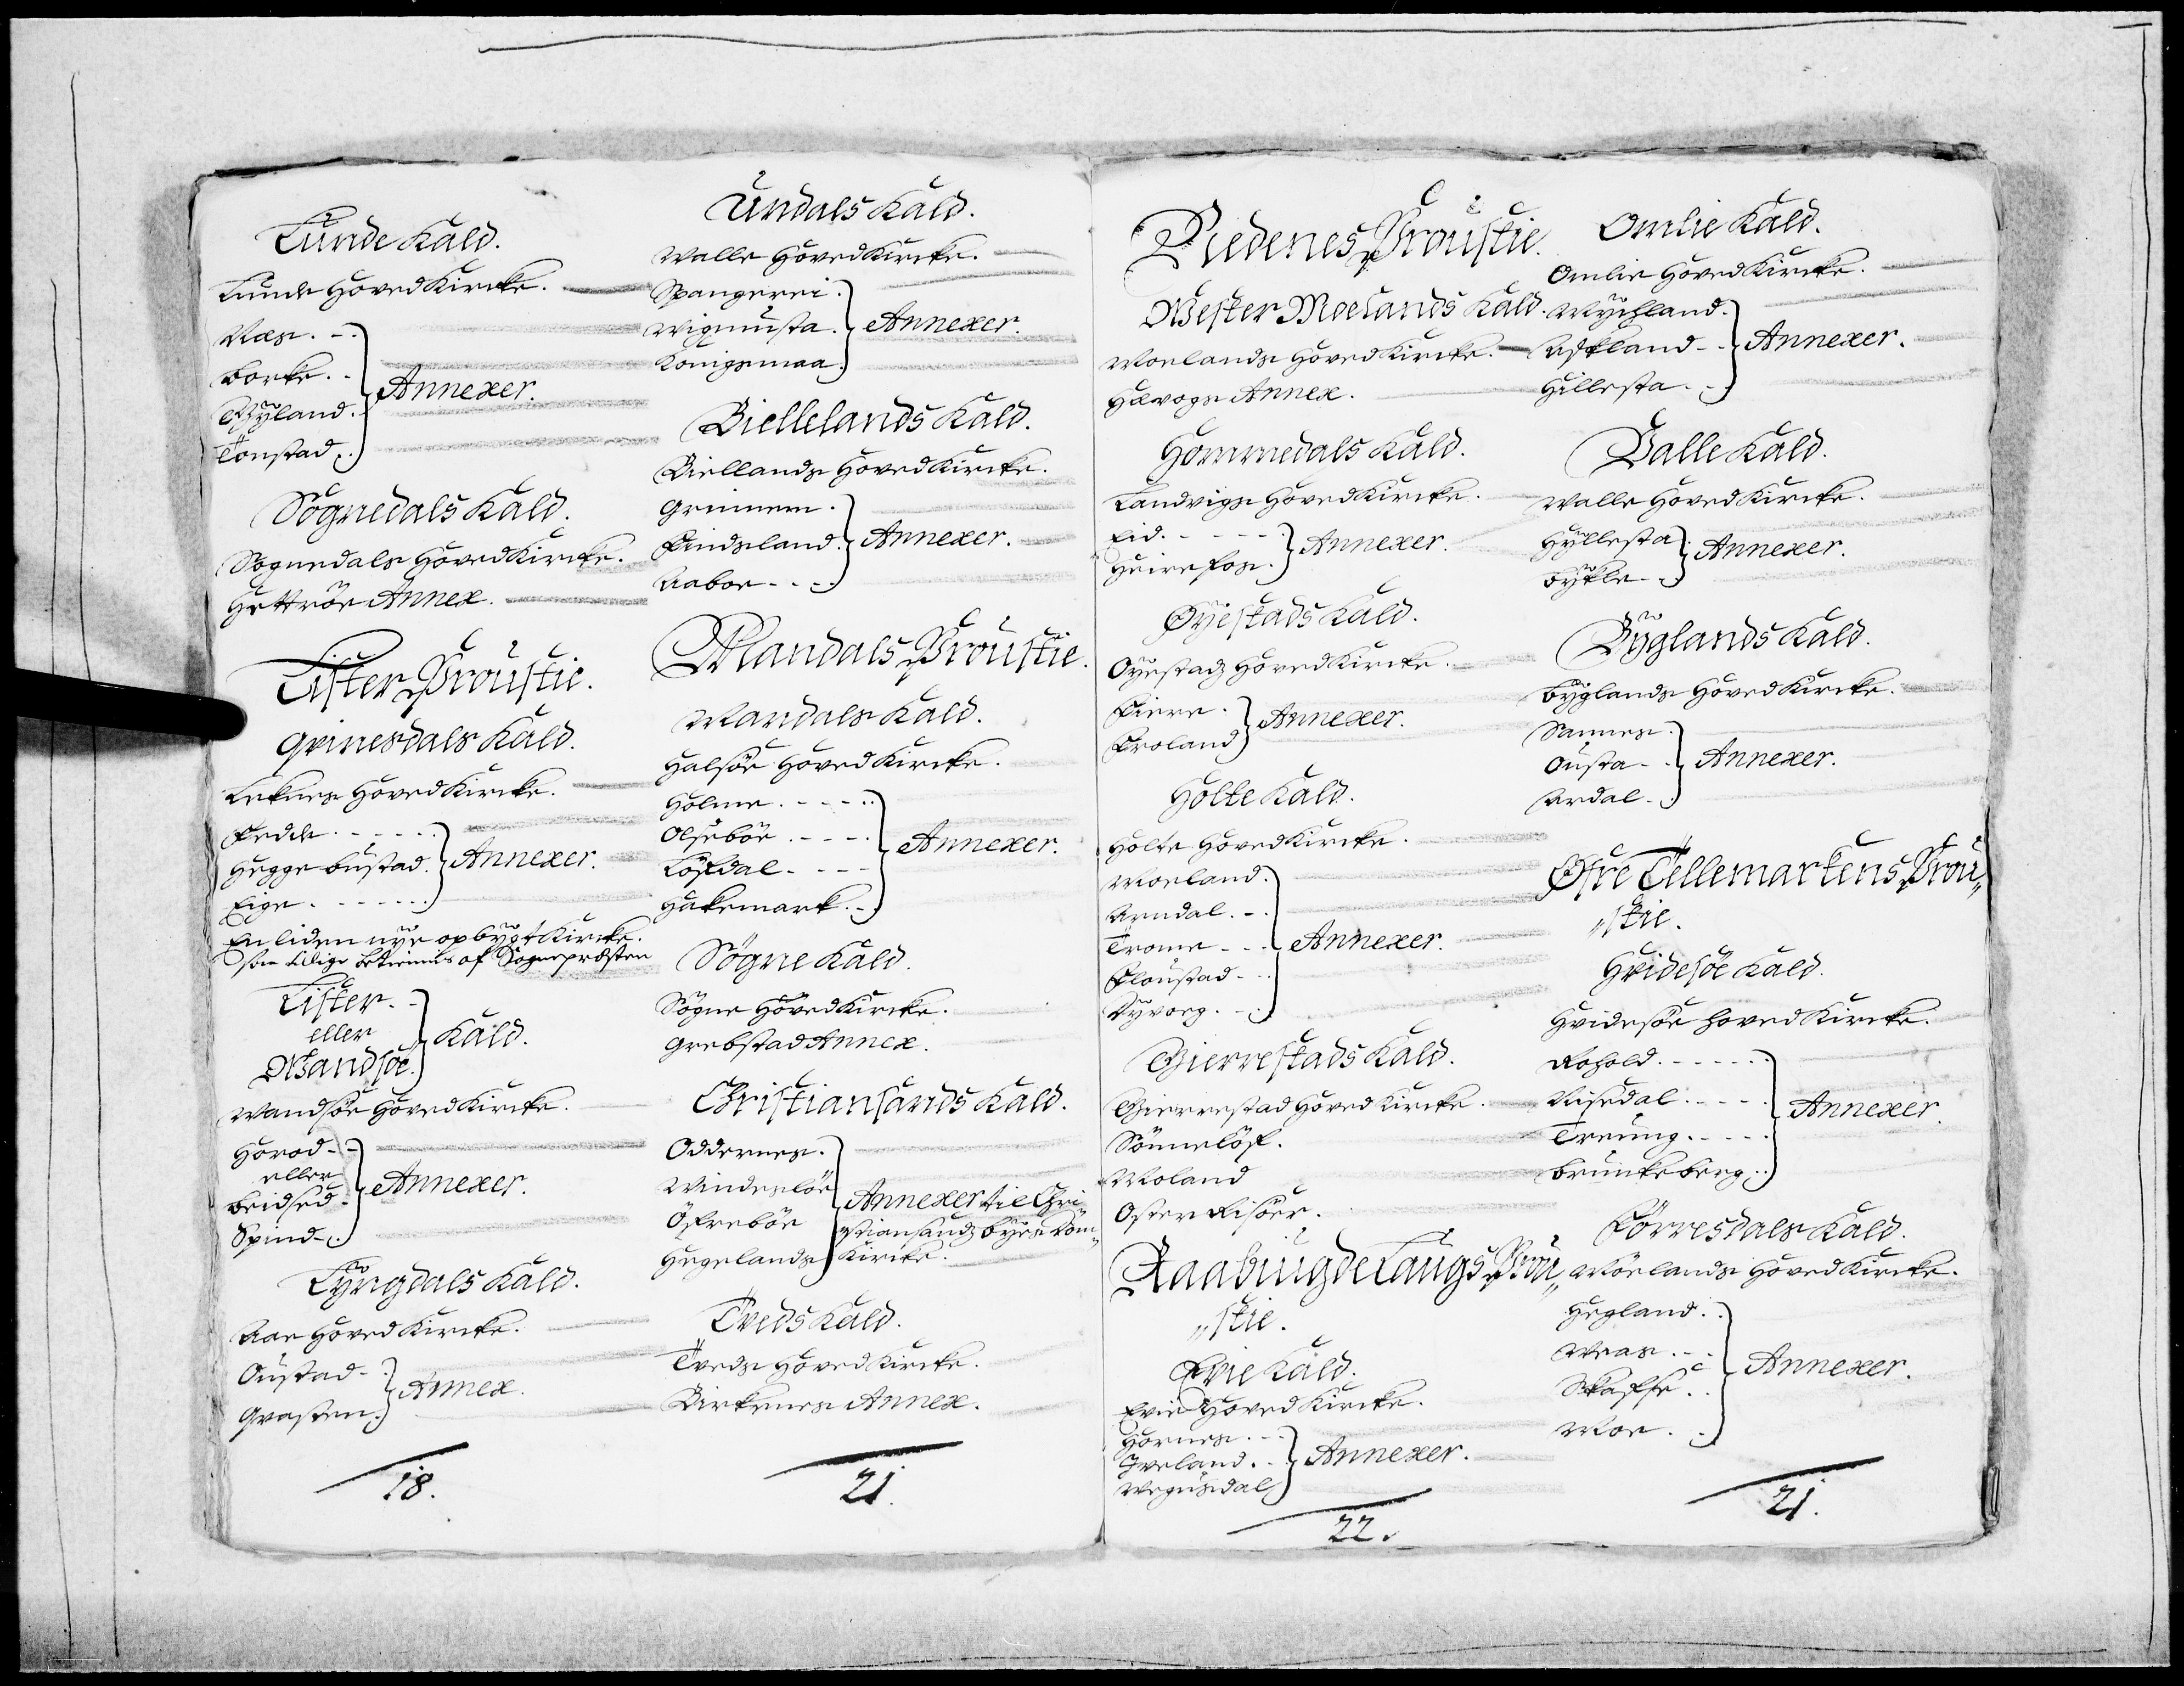 Lunde Kald.
Lunde HovedKircke.
Næs.
Backe.
Byland.
Tonstad.
Annexer.
Sognedals Kald.
Sognedals HovedKircke.
Hetteröe Annex.
Lister Proustie.
Qvinesdals Kald.
Leknes HovedKircke.
Fedde.
Heggebustad.
Eige.
Annexer.
En liden nye opbygt Kircke.
som tilige betienis af Sognepræsten
Lister
eller
Wandsöe.
Kald.
Wandsöe HovedKircke.
Herod
eller
Beidsed
Spind
Annexer.
Lyngdals Kald.
Aae HovedKircke.
Oustad
Qvasten.
Annex.
18.
Undals Kald.
Walle HovedKircke.
Spangerei.
Wigmusta.
Konigsmaa.
Annexer.
Biellelands Kald.
Biellands HovedKircke.
Grinnem.
Findsland.
Aaboe
Annexer.
Mandals Proustie.
Mandals Kald.
Halsöe HovedKircke.
Holme.
Olseböe.
Löfdal.
Hakemark.
Annexer.
Sögne Kald.
Sögne HovedKircke.
Grebstad Annex.
Christiansands Kald.
Oddernes.
Windeslöe
Öfreböe
Hegelands
Annexer til Chri
stiansands Byes Dom„
Kircke.
Tveds Kald.
Tveds HovedKircke.
Birkenes Annex.
21.
Nedenes Proustie.
Wester Moelands Kald.
Moelands HovedKircke.
Hævogs Annex.
Hommedals Kald.
Landvigs HovedKircke.
Eid.
Heirefos.
Annexer.
Øyestads Kald.
Oyestads HovedKircke.
Fiere.
Froland
Annexer.
Holte Kald.
Holte HovedKircke.
Moeland.
Arndal.
Trome
Floustad
Dyvaag.
Annexer.
Gierrestads Kald.
Gierrestad HovedKircke.
Sönnelöf.
Moland
Oster Risöer.
Raabiugdelaugs Prou„
„stie.
Evie Kald.
Evie HovedKircke.
Hornes.
Iveland.
Wegusdal
Annexer.
22.
Omlie Kald.
Omlie HovedKircke.
Mychland.
Askland
Gillesta.
Annexer.
Valle Kald.
Walle HovedKircke.
Hyllesta
Bykle
Annexer.
Byglands Kald.
Byglands HovedKircke.
Sannes.
Ousta
Ardal.
Annexer.
Øfre Tellemarkens Prou„
„stie.
Hvidesöe Kald.
Hvidesöe HovedKircke.
Rohold.
Nisedal.
Treung.
Brunkeberg.
Annexer.
Förresdals Kald.
Moelands HovedKircke.
Hegland.
Skafse.
Moe.
Annexer.
21.